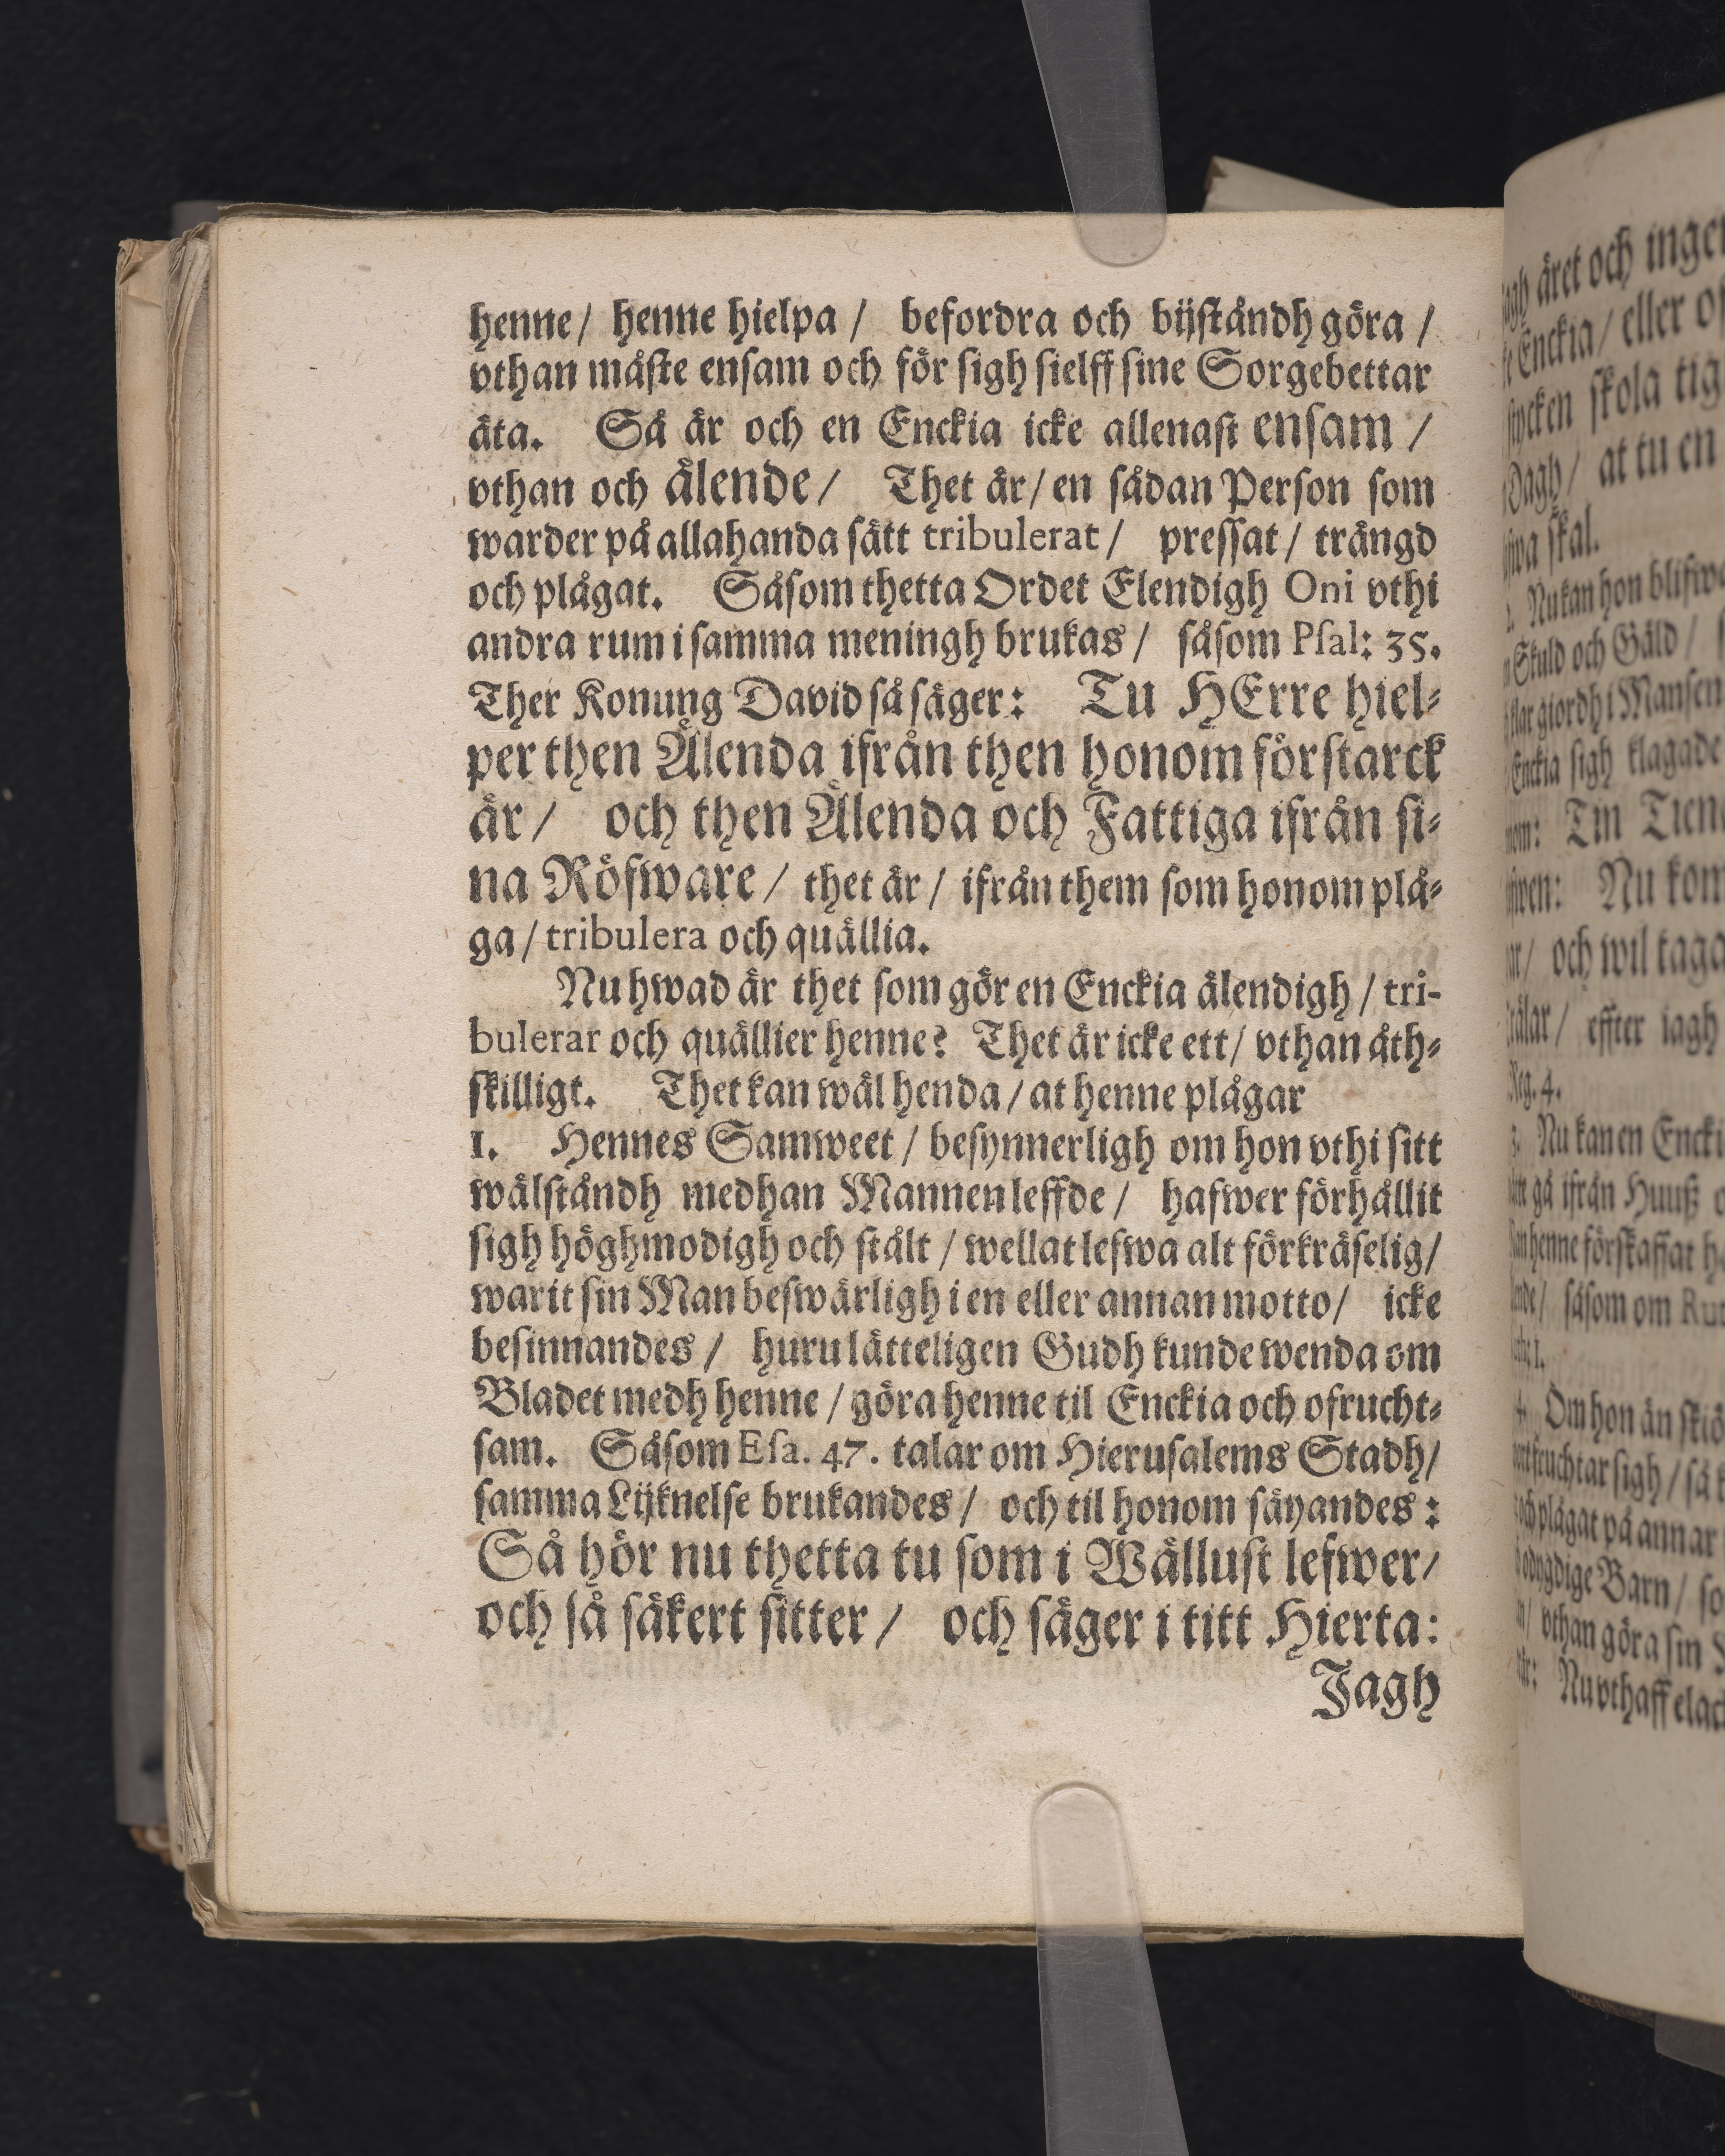 henne/ henne hielpa / befordra och bijståndh göra /
vthan måste ensam och för sigh sielff sine Sorgebettar
äta. Så är och en Enckia icke allenast ensam /
vthan och älende/ Thet är/ en sådan Person som
warder på allahanda sätt tribulerat/ pressat/ trängd
och plågat. Såsom thetta Ordet Elendigh Oni vthi
andra rum i samma meningh brukas / såsom Psal: 35.
Ther Konung David så säger: Tu HErre hiel-
per then Älenda ifrån then honom förstarck
är / och then Älenda och Fattiga ifrån si-
na Röfware / thet är / ifrån them som honom plå-
ga / tribulera och quällia.
Nu hwad är thet som gör en Enckia älendigh / tri-
bulerar och quällier henne? Thet är icke ett/ vthan åth-
skilligt. Thet kan wäl henda / at henne plågar
1. Hennes Samweet / besynnerligh om hon vthi sitt
wälståndh medhan Mannen leffde / hafwer förhållit
sigh höghmodigh och stålt / wellat lefwa alt förkräselig/
warit sin Man beswärligh i en eller annan motto/ icke
besinnandes / huru lätteligen Gudh kunde wenda om
Bladet medh henne / göra henne til Enckia och ofrucht-
sam. Såsom Esa. 47. talar om Hierusalems Stadh/
samma Lijknelse brukandes / och til honom säyandes:
Så hör nu thetta tu som i Wällust lefwer/
och så säkert sitter / och säger i titt Hierta:
Jagh
äret och
Enckia/ eller
skola
Dagh/ at tu en
skal.
Nu kan hon
Skuld och Gäld /
giordh i
Enckia sigh klagade
Tin
Nu kom
och wil taga
effter iagh
4.
Nu kan en
gå ifrån Huuß
henne förskaffat
såsom om
1.
4. Om hon än
sigh / så
plågat på annar
Barn / so
vthan göra sin